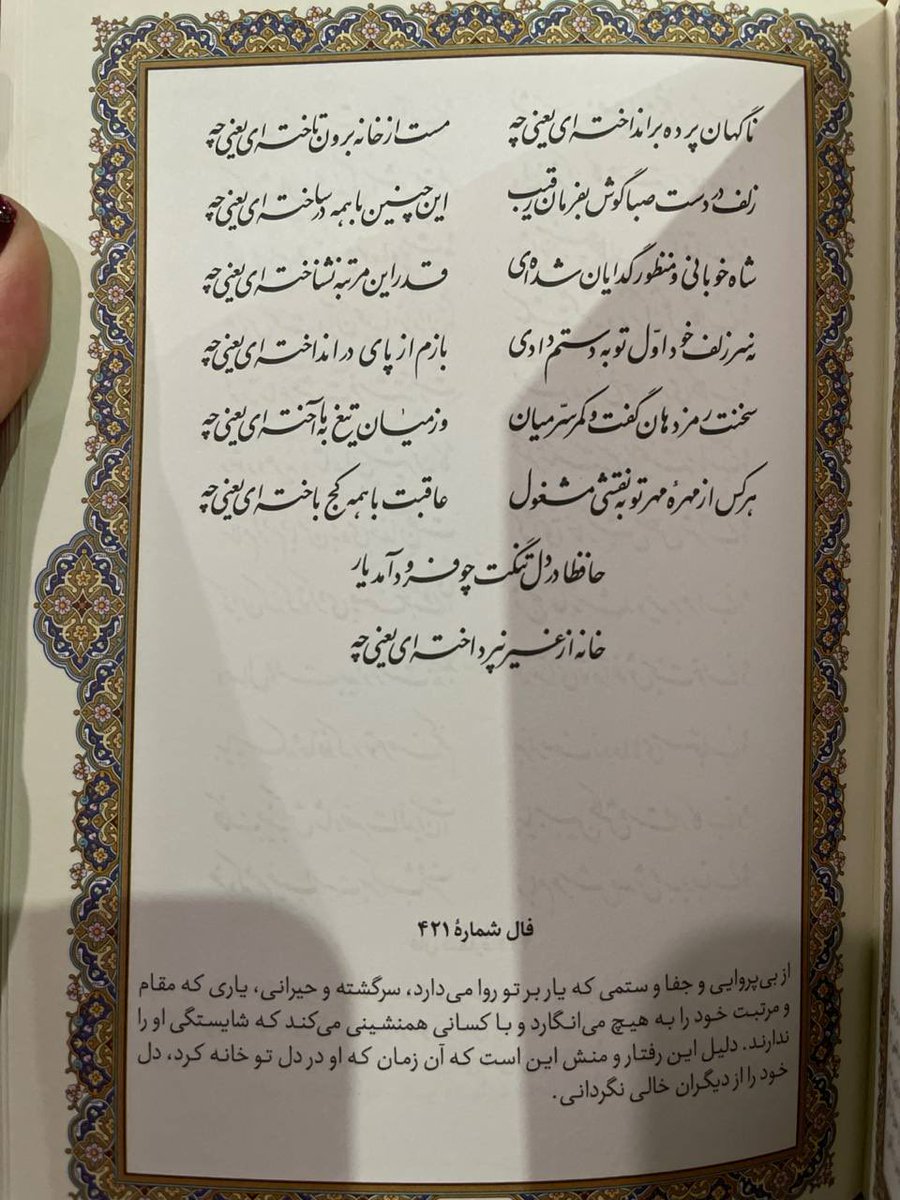 ناگهان پرده برانداخته‌ای یعنی چه مست از خانه برون تاخته‌ای یعنی چه
زلف در دست صبا گوش بفرمان رقیب این چنین با همه درساخته‌ای یعنی چه
شاه خوبانی و منظور گدایان شده‌ای قدر این مرتبه نشناخته‌ای یعنی چه
نه سر زلف خود اوّل تو به دستم دادی بازم از پای درانداخته‌ای یعنی چه
سخنت رمز دهان گفت و کمر سرّ میان وز میان تیغ به ما آخته‌ای یعنی چه
هر کس از مهرهٔ مهر تو به نقشی مشغول عاقبت با همه کج باخته‌ای یعنی چه
حافظا در دل تنگت چو فرود آمد یار
خانه از غیر نپرداخته‌ای یعنی چه
فال شمارهٔ ۴۲۱
از بی‌پروایی و جفا و ستمی که یار بر تو روا می‌دارد، سرگشته و حیرانی، یاری که مقام
و مرتبت خود را به هیچ می‌انگارد و با کسانی همنشینی می‌کند که شایستگی او را
ندارند. دلیل این رفتار و منش این است که آن زمان که او در دل تو خانه کرد، دل
خود را از دیگران خالی نگردانی.